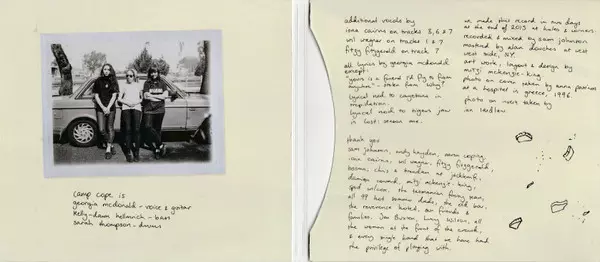 camp cope is
georgia mcdonald - voice & guitar
kelly-dawn hellmrich - bass
sarah thompson - drums
additional vocals by
iona cairns on tracks 3, 6 & 7
wil wagner on tracks 1 & 7
fitzy fitzgerald on track 7
all lyrics by georgia mcdonald
except:
"yours is a funeral I'd fly to from
anywhere" - taken from "why?"
lyrical nod to
in
lyrical nod to pigeon jaw
in lost: season one.
thank you
sam johnson, andy hayden,
iona cairns, wil wagner, fitzy fitzgerald,
chris & brendan at jackknife,
damien mitzi mckenzie-king,
wilson, the tasmanian
all 99 hot bands, the old bar,
the reverence hotel, our friends &
families, jon buxton, lucy wilson, all
the women at the front of the crowd,
& every single band that we have had
the privilege of playing with.
we made this record in two days
at the end of 2015 at holes & corners.
recorded & mixed by sam johnson
mastered by alan douches at west
west side, NY.
art work, layout & design by
mitzi mckenzie-king
photo on cover taken by anna
at a hospital in greece, 1996.
photo on inset taken by
ian laidlaw